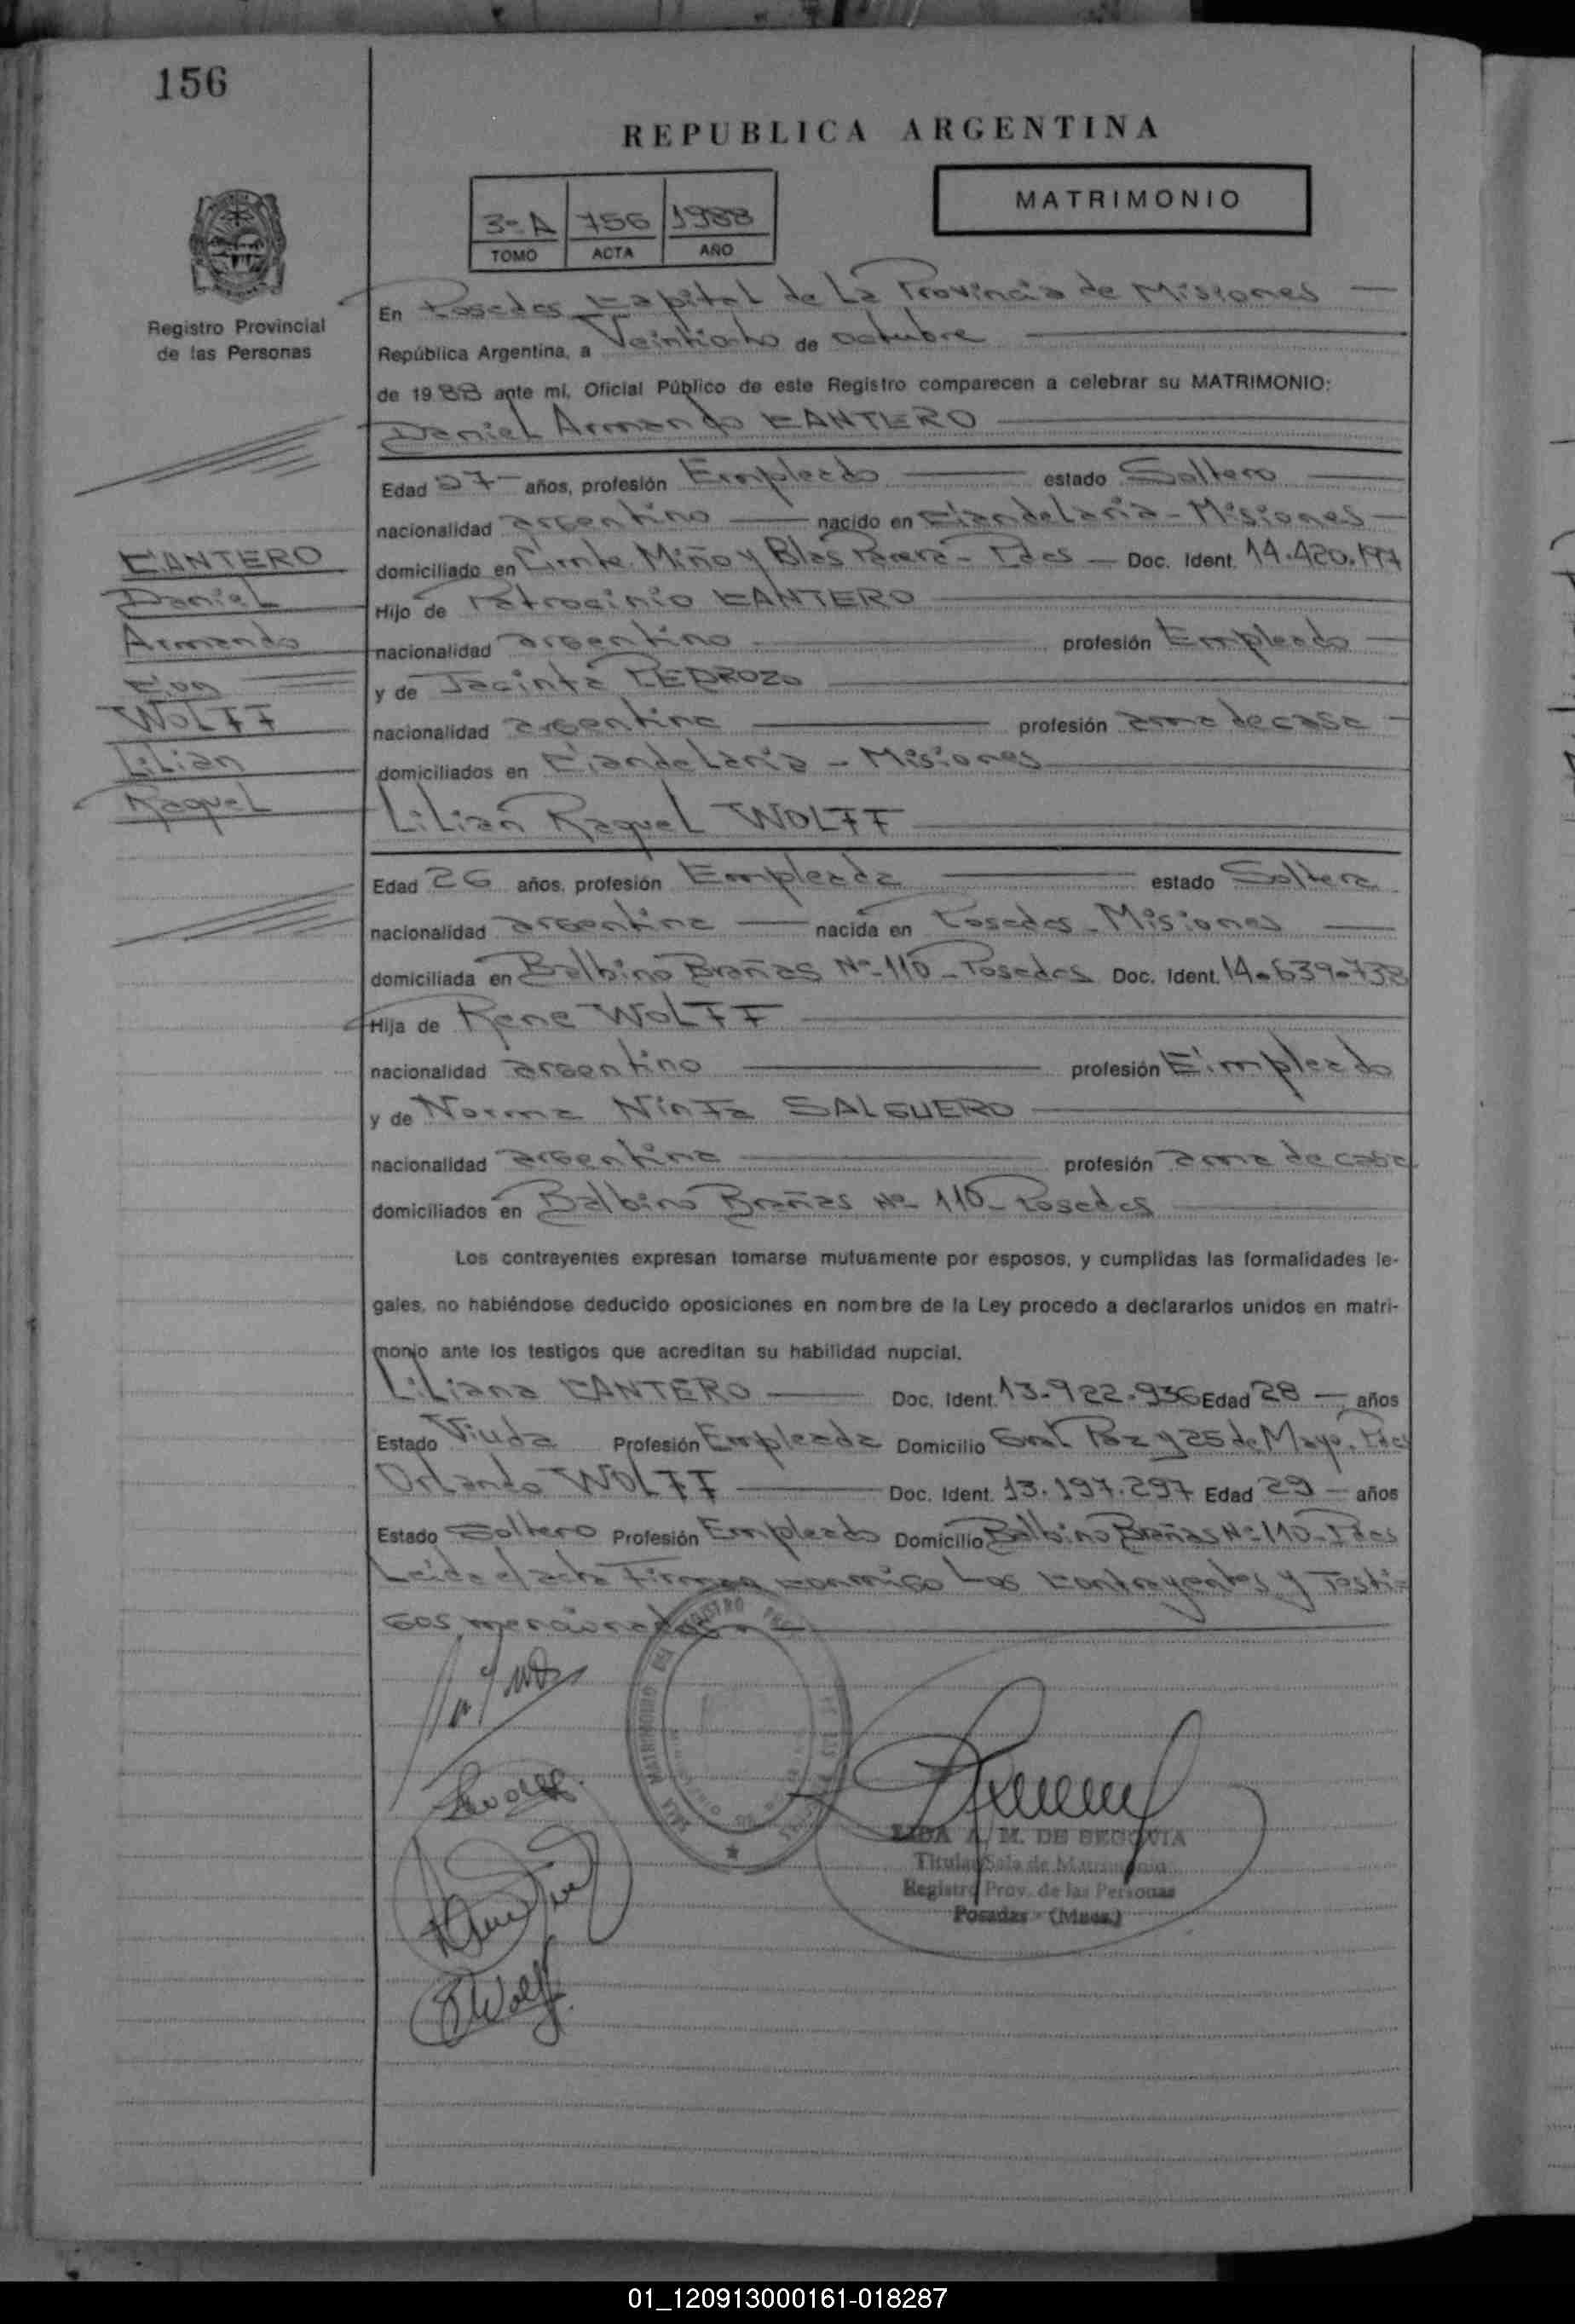 156
REPUBLICA ARGENTINA
MATRIMONIO
3º A 756 1988
TOMO ACTA AÑO
Registro Provincial
de las Personas
En Posadas Capital de La Provincia de Misiones
República Argentina, a Veintiocho de octubre
de 1988 ante mi, Oficial Público de este Registro comparecen a celebrar su MATRIMONIO:
Daniel Armando CANTERO
Edad 27 años, profesión Empleado estado Soltero
nacionalidad argentino nacido en Candelaria - Misiones
domiciliado en Cmte. Miño y Blas Parera - Pdas Doc. Ident. 14.420.197
Hijo de Patrocinio CANTERO
nacionalidad argentino profesión Empleado
y de Jacinta PEDROZO
nacionalidad argentina profesión ama de casa
domiciliados en Candelaria - Misiones
CANTERO
Daniel
Armando
Con
WOLFF
Lilian
Raquel
Lilian Raquel WOLFF
Edad 26 años, profesión Empleada estado Soltera
nacionalidad argentina nacida en Posadas - Misiones
domiciliada en Balbino Brañas Nº 110 - Posadas Doc. Ident. 14.639.738
Hija de Rene WOLFF
nacionalidad argentino profesión Empleado
y de Norma Ninfa SALGUERO
nacionalidad argentina profesión ama de casa
domiciliados en Balbino Brañas Nº 110 - Posadas
Los contrayentes expresan tomarse mutuamente por esposos, y cumplidas las formalidades le-
gales, no habiéndose deducido oposiciones en nombre de la Ley procedo a declararlos unidos en matri-
monio ante los testigos que acreditan su habilidad nupcial.
Liliana CANTERO Doc. Ident. 13.922.936 Edad 28 años
Estado Viuda Profesión Empleada Domicilio Gral Paz y 25 de Mayo. Pdas
Orlando WOLFF Doc. Ident. 13.197.297 Edad 29 años
Estado Soltero Profesión Empleado Domicilio Balbino Brañas Nº 110 - Pdas
Leida el acta Firman conmigo Los Contrayentes y Testi-
gos mencionados
LIDA A. M. DE SEGOVIA
Titular Sala de Matrimonio
Registro Prov. de las Personas
Posadas - (Mnes.)
01_120913000161-018287